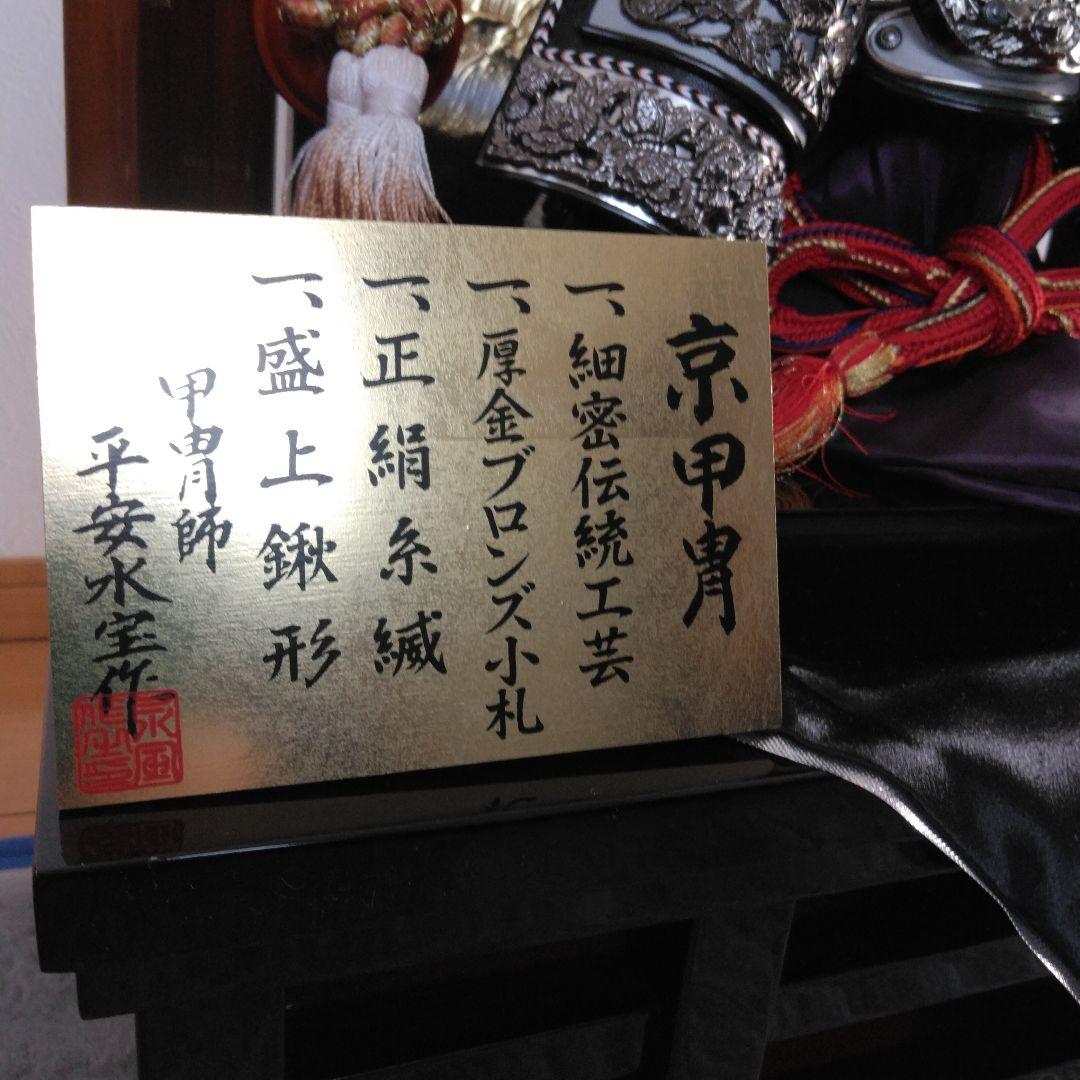 京甲冑
一、細密伝統工芸
一、厚金ブロンズ小札
一、正絹糸縅
一、盛上鍬形
甲冑師
平安水宝作